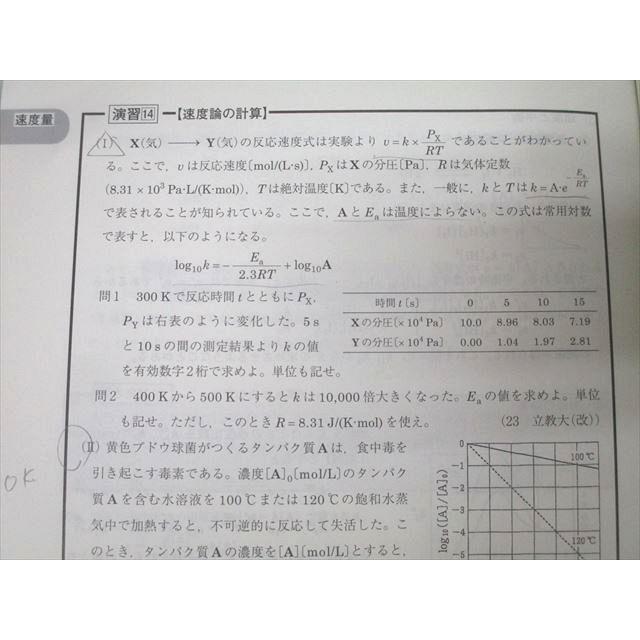 演習14 【速度論の計算】
速度量
(Ⅰ) X(気) ⟶ Y(気)の反応速度式は実験より v=k×P_X/RT であることがわかってい
る。ここで，vは反応速度〔mol/(L·s)〕，P_XはXの分圧〔Pa〕，Rは気体定数
(8.31×10³Pa·L/(K·mol))，Tは絶対温度〔K〕である。また，一般に，kとTはk=A·e^(-E_a/RT)
で表されることが知られている。ここで，AとE_aは温度によらない。この式は常用対数
で表すと，以下のようになる。
log₁₀k=-E_a/2.3RT+log₁₀A
問1 300Kで反応時間tとともにP_X,
P_Yは右表のように変化した。5s
と10sの間の測定結果よりkの値
を有効数字2桁で求めよ。単位も記せ。
時間t〔s〕 0 5 10 15
Xの分圧〔×10⁴Pa〕 10.0 8.96 8.03 7.19
Yの分圧〔×10⁴Pa〕 0.00 1.04 1.97 2.81
問2 400Kから500Kにするとkは10,000倍大きくなった。E_aの値を求めよ。単位
も記せ。ただし，このときR=8.31J/(K·mol)を使え。 (23 立教大(改))
(Ⅱ) 黄色ブドウ球菌がつくるタンパク質Aは，食中毒を
引き起こす毒素である。濃度[A]₀〔mol/L〕のタンパク
質Aを含む水溶液を100℃または120℃の飽和水蒸
気中で加熱すると，不可逆的に反応して失活した。こ
のとき，タンパク質Aの濃度を[A]〔mol/L〕とすると，
OK
log₁₀([A]/[A]₀)
0
-1
-2
-3
-4
-5
100℃
120℃